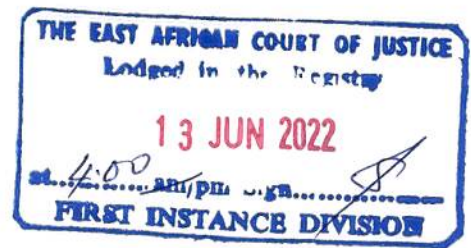 THE EAST AFRICAN COURT OF JUSTICE
Lodged in the Registry
13 JUN 2022
at....4:00....... am/pm Sign..................
FIRST INSTANCE DIVISION